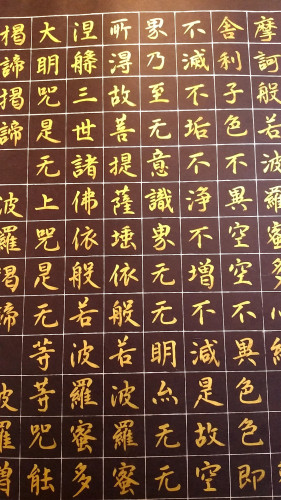 摩訶般若波羅蜜多心經
舍利子色不異空空不異色色即
不滅不垢不淨不增不減是故空
界乃至无意識界无无明亦无无
所得故菩提薩埵依般若波羅蜜
涅槃三世諸佛依般若波羅蜜多
大明咒是无上咒是无等等咒能
揭諦揭諦波羅揭諦波羅僧